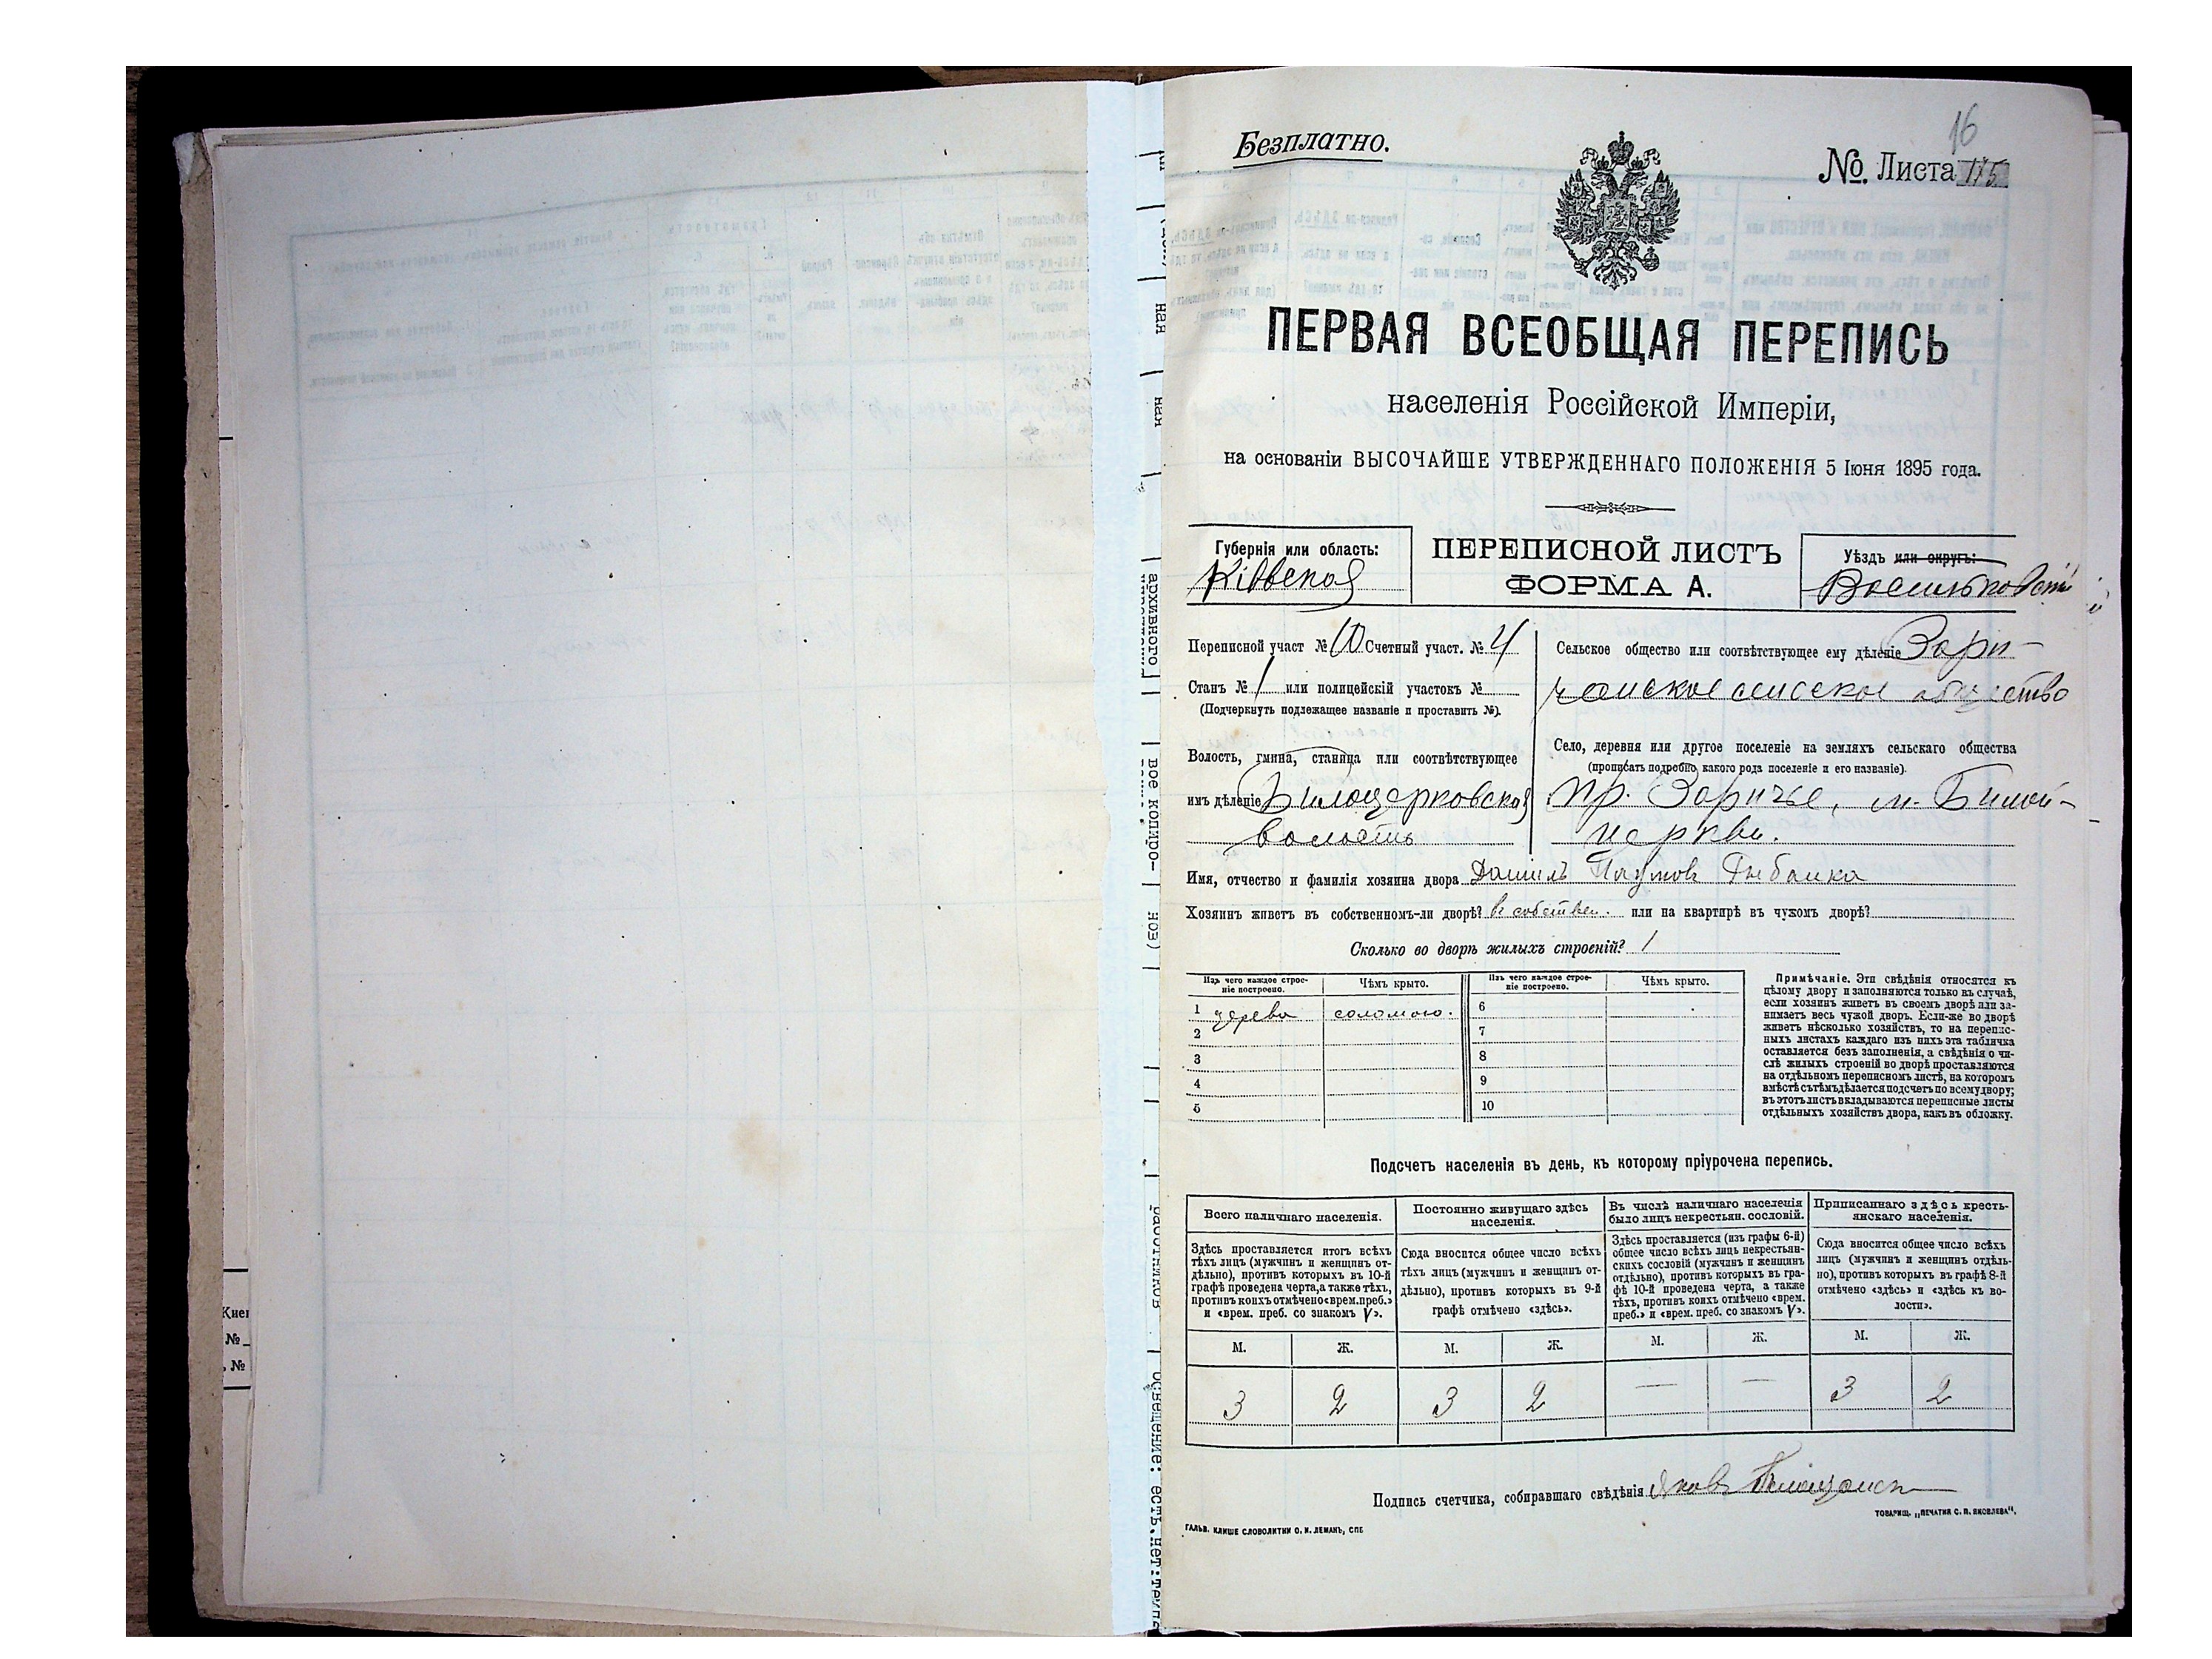 16
Безплатно.
№ Листа 115
ПЕРВАЯ ВСЕОБЩАЯ ПЕРЕПИСЬ
населенія Россійской Имперіи,
на основаніи ВЫСОЧАЙШЕ УТВЕРЖДЕННАГО ПОЛОЖЕНІЯ 5 Іюня 1895 года.
Губернія или область:
Кіевская
ПЕРЕПИСНОЙ ЛИСТЪ
ФОРМА А.
Уѣздъ или округъ:
Васильковскій
Переписной участ № 10 Счетный участ. № 4
Станъ № 1 или полицейскій участокъ №
(Подчеркнуть подлежащее названіе и проставить №).
Волость, гмина, станица или соотвѣтствующее
имъ дѣленіе Билоцерковская
волость
Сельское общество или соотвѣтствующее ему дѣленіе Зари-
чанское сельское общество
Село, деревня или другое поселеніе на земляхъ сельскаго общества
(прописать подробно какого рода поселеніе и его названіе).
пр. Заричье, м. Билой-
церкви.
Имя, отчество и фамилія хозяина двора Данилъ Наумовъ
Хозяинъ живетъ въ собственномъ-ли дворѣ? въ собствен. или на квартирѣ въ чужомъ дворѣ?
Сколько во дворѣ жилыхъ строеній? 1
Изъ чего каждое строе-
ніе построено.
Чѣмъ крыто.
Изъ чего каждое строе-
ніе построено.
Чѣмъ крыто.
1 дерева соломою. 6
2 7
3 8
4 9
5 10
Примѣчаніе. Эти свѣдѣнія относятся къ
цѣлому двору и заполняются только въ случаѣ,
если хозяинъ живетъ въ своемъ дворѣ или за-
нимаетъ весь чужой дворъ. Если-же во дворѣ
живетъ нѣсколько хозяйствъ, то на перепис-
ныхъ листахъ каждаго изъ нихъ эта табличка
оставляется безъ заполненія, а свѣдѣнія о чи-
слѣ жилыхъ строеній во дворѣ проставляются
на отдѣльномъ переписномъ листѣ, на которомъ
вмѣстѣ съ тѣмъ дѣлается подсчетъ по всему двору;
въ этотъ листъ вкладываются переписные листы
отдѣльныхъ хозяйствъ двора, какъ въ обложку.
Подсчетъ населенія въ день, къ которому пріурочена перепись.
Всего наличнаго населенія.
Здѣсь проставляется итогъ всѣхъ
тѣхъ лицъ (мужчинъ и женщинъ от-
дѣльно), противъ которыхъ въ 10-й
графѣ проведена черта, а также тѣхъ,
противъ коихъ отмѣчено «врем. преб.»
и «врем. преб. со знакомъ V».
М. Ж.
3 2
Постоянно живущаго здѣсь
населенія.
Сюда вносится общее число всѣхъ
тѣхъ лицъ (мужчинъ и женщинъ от-
дѣльно), противъ которыхъ въ 9-й
графѣ отмѣчено «здѣсь».
М. Ж.
3 2
Въ числѣ наличнаго населенія
было лицъ некрестьян. сословій.
Здѣсь проставляется (изъ графы 6-й)
общее число всѣхъ лицъ некрестьян-
скихъ сословій (мужчинъ и женщинъ
отдѣльно), противъ которыхъ въ гра-
фѣ 10-й проведена черта, а также
тѣхъ, противъ коихъ отмѣчено «врем.
преб.» и «врем. преб. со знакомъ V».
М. Ж.
— —
Приписаннаго здѣсь кресть-
янскаго населенія.
Сюда вносится общее число всѣхъ
лицъ (мужчинъ и женщинъ отдѣль-
но), противъ которыхъ въ графѣ 8-й
отмѣчено «здѣсь» и «здѣсь къ во-
лости».
М. Ж.
3 2
Подпись счетчика, собиравшаго свѣдѣнія Яковъ
ГАЛЬВ. КЛИШЕ СЛОВОЛИТНИ О. И. ЛЕМАНЪ, СПБ
ТОВАРИЩ. „ПЕЧАТНЯ С. П. ЯКОВЛЕВА“.